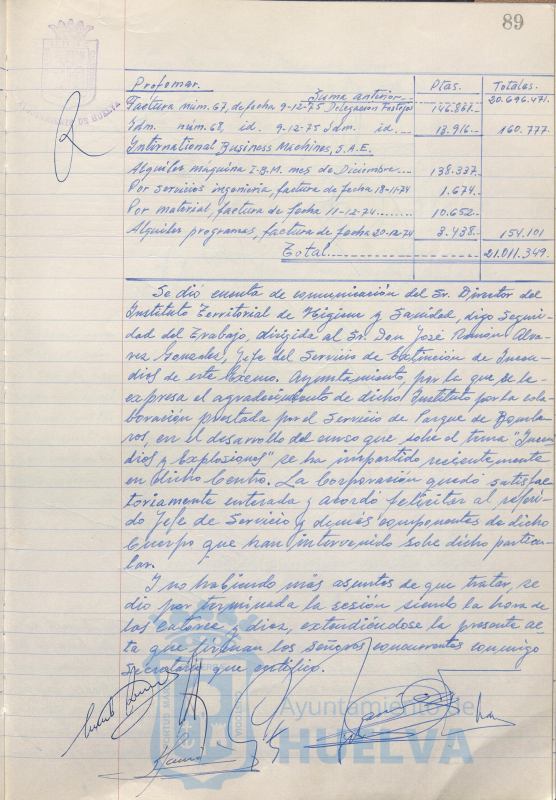 89
AYUNTAMIENTO DE HUELVA
Profomar. Ptas. Totales.
Suma anterior 20.696.471.
Factura núm. 67, de fecha 9-12-75 Delegación Festejos 146.861.-
Idm. núm. 68, id. 9-12-75 Idm. id. 13.916.- 160.777.
International Business Machines, S.A.E.
Alquiler maquina I.B.M. mes de Diciembre 138.337.-
Por servicios ingenieria, factura de fecha 18-11-74 1.674.-
Por material, factura de fecha 11-12-74 10.652.-
Alquiler programas, factura de fecha 20-12-74 3.438.- 154.101
Total 21.011.349.
Se dió cuenta de comunicación del Sr. Director del
Instituto Territorial de Higiene y Sanidad, digo Seguri-
dad del Trabajo, dirigida al Sr. Don José Ramón Alva-
rez Gonzalez, Jefe del Servicio de Extinción de Incen-
dios de este Excmo. Ayuntamiento, por la que se le
expresa el agradecimiento de dicho Instituto por la cola-
boración prestada por el Servicio de Parque de Bombe-
ros, en el desarrollo del curso que sobre el tema "Incen-
dios y Explosiones" se ha impartido recientemente
en dicho Centro. La Corporación quedó satisfac-
toriamente enterada y acordó felicitar al referi-
do Jefe de Servicio y demás componentes de dicho
Cuerpo que han intervenido sobre dicho particu-
lar.
Y no habiendo más asuntos de que tratar, se
dió por terminada la sesión siendo la hora de
las catorce y diez, extendiéndose la presente ac-
ta que firman los señores concurrentes conmigo
Secretario que certifico.
Ayuntamiento de
HUELVA